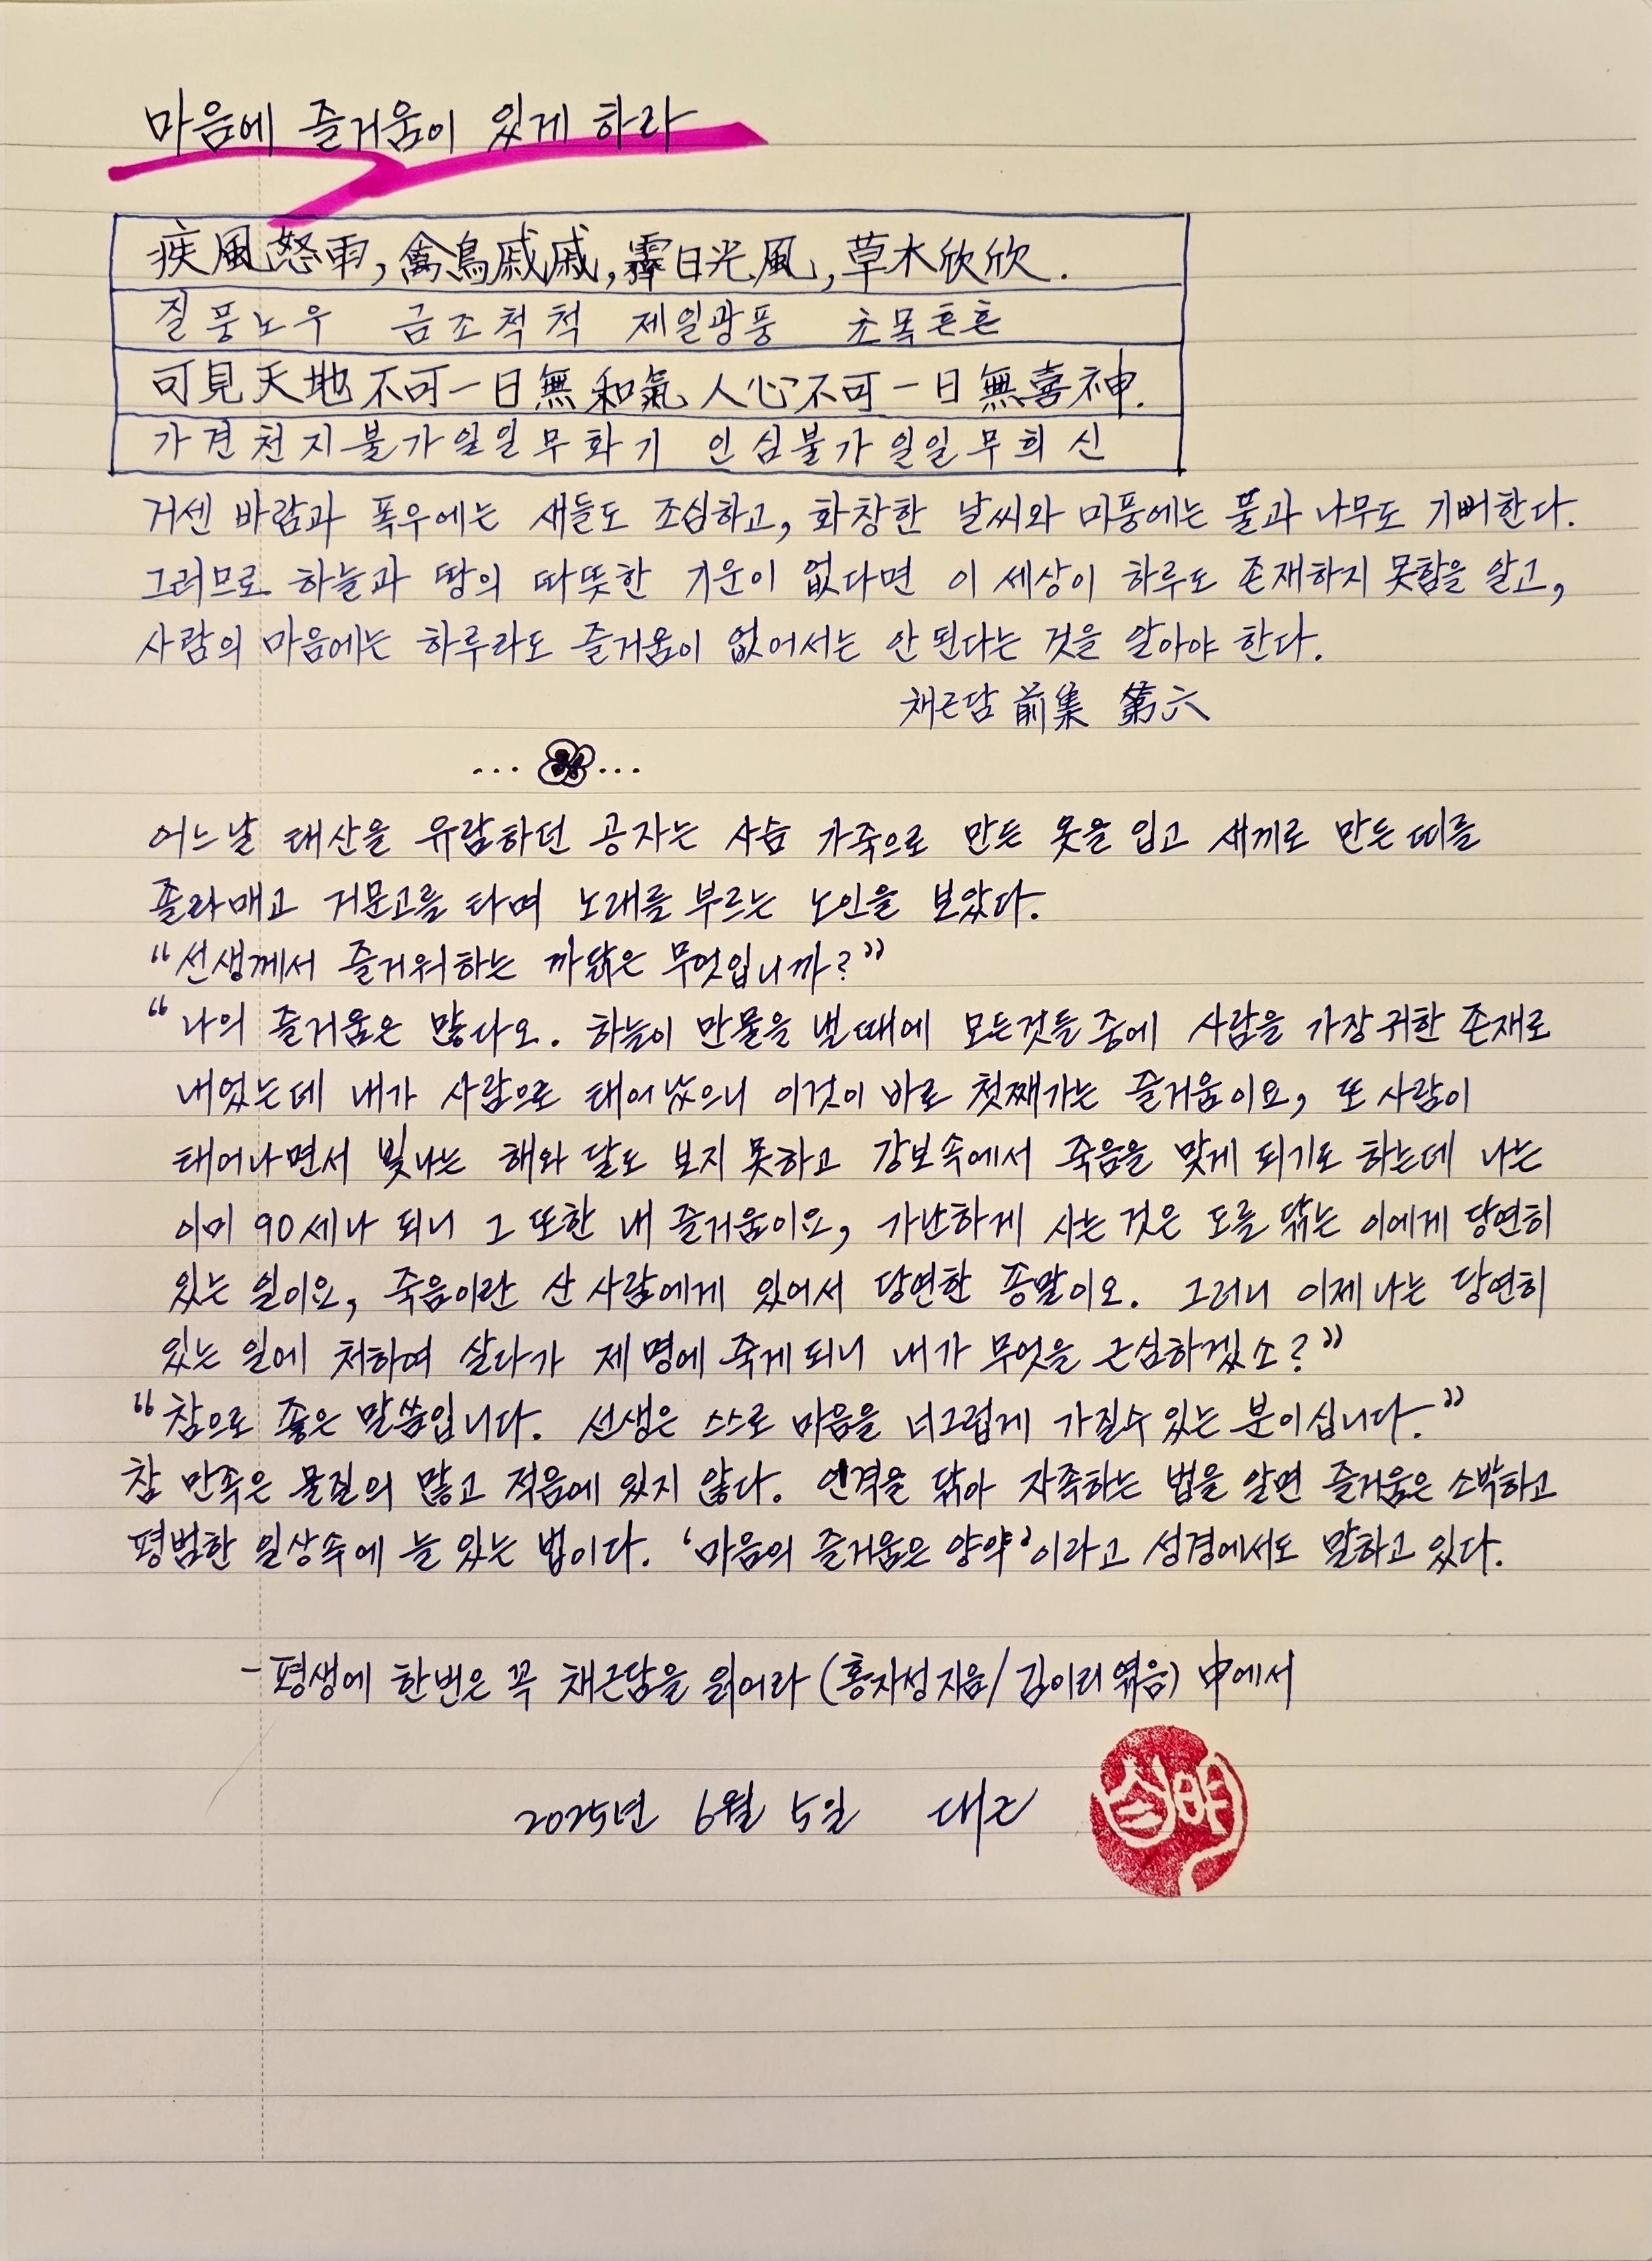 마음에 즐거움이 있게 하라
疾風怒雨, 禽鳥戚戚, 霽日光風, 草木欣欣.
질풍노우 금조척척 제일광풍 초목흔흔
可見天地不可一日無和氣 人心不可一日無喜神.
가견천지불가일일무화기 인심불가일일무희신
거센 바람과 폭우에는 새들도 조심하고, 화창한 날씨와 미풍에는 풀과 나무도 기뻐한다.
그러므로 하늘과 땅의 따뜻한 기운이 없다면 이 세상이 하루도 존재하지 못함을 알고,
사람의 마음에는 하루라도 즐거움이 없어서는 안 된다는 것을 알아야 한다.
채근담 前集 第六
어느날 태산을 유람하던 공자는 사슴 가죽으로 만든 옷을 입고 새끼로 만든 띠를
졸라매고 거문고를 타며 노래를 부르는 노인을 보았다.
"선생께서 즐거워하는 까닭은 무엇입니까?"
"나의 즐거움은 많다오. 하늘이 만물을 낼 때에 모든것들 중에 사람을 가장 귀한 존재로
내었는데 내가 사람으로 태어났으니 이것이 바로 첫째가는 즐거움이요, 또 사람이
태어나면서 빛나는 해와 달도 보지 못하고 강보속에서 죽음을 맞게 되기도 하는데 나는
이미 90세나 되니 그 또한 내 즐거움이요, 가난하게 사는 것은 도를 닦는 이에게 당연히
있는 일이요, 죽음이란 산 사람에게 있어서 당연한 종말이오. 그러니 이제 나는 당연히
있는 일에 처하여 살다가 제 명에 죽게 되니 내가 무엇을 근심하겠소?"
"참으로 좋은 말씀입니다. 선생은 스스로 마음을 너그럽게 가질수 있는 분이십니다."
참 만족은 물질의 많고 적음에 있지 않다. 인격을 닦아 자족하는 법을 알면 즐거움은 소박하고
평범한 일상속에 늘 있는 법이다. '마음의 즐거움은 양약'이라고 성경에서도 말하고 있다.
- 평생에 한번은 꼭 채근담을 읽어라 (홍자성 지음/김이리 엮음) 中에서
2025년 6월 5일